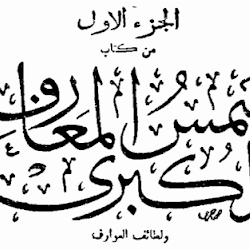 الجزء الاول
من كتاب
شمس المعارف
الكبرى
ولطائف العوارف